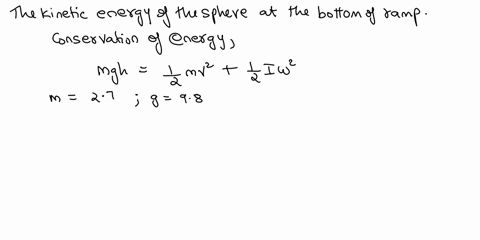 The kinetic energy of the sphere at the bottom of ramp.
Conservation of Energy,
mgh = 1/2 mv² + 1/2 Iω²
m = 2.7 ; g = 9.8